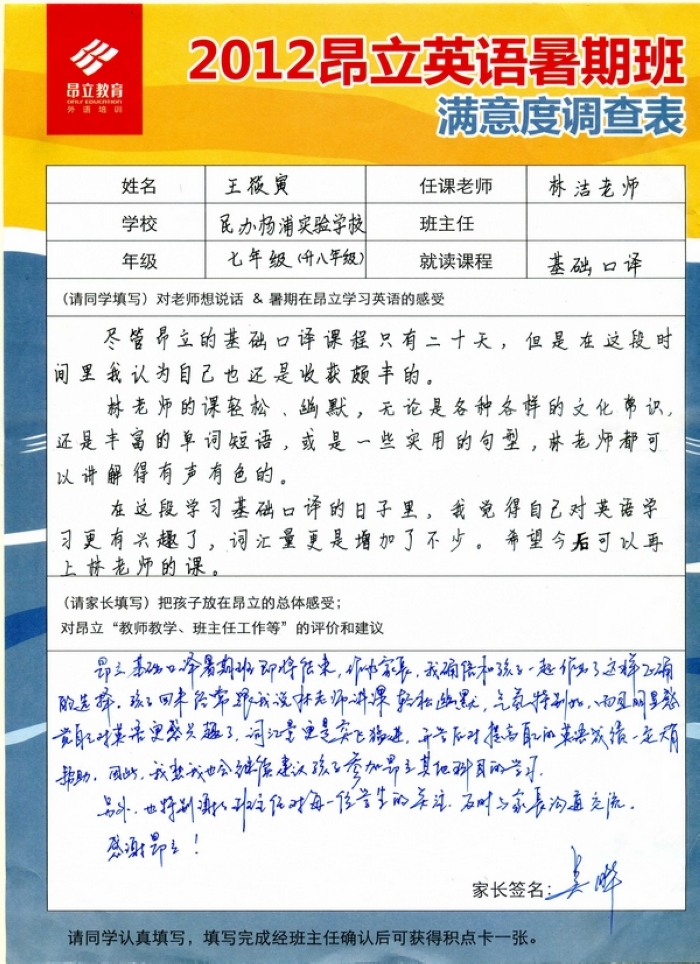 昂立教育
ONLY EDUCATION
外语培训
2012昂立英语暑期班
满意度调查表
姓名 王筱寅 任课老师 林洁老师
学校 民办杨浦实验学校 班主任
年级 七年级(升八年级) 就读课程 基础口译
(请同学填写)对老师想说话 & 暑期在昂立学习英语的感受
尽管昂立的基础口译课程只有二十天，但是在这段时
间里我认为自己也还是收获颇丰的。
林老师的课轻松、幽默，无论是各种各样的文化常识，
还是丰富的单词短语，或是一些实用的句型，林老师都可
以讲解得有声有色的。
在这段学习基础口译的日子里，我觉得自己对英语学
习更有兴趣了，词汇量更是增加了不少。希望今后可以再
上林老师的课。
(请家长填写)把孩子放在昂立的总体感受；
对昂立“教师教学、班主任工作等”的评价和建议
昂立基础口译暑期班即将结束，作为家长，我确信和孩子一起作出了这样正确
的选择，孩子回来经常跟我说林老师讲课轻松幽默，气氛特别好，而且明显感
觉自己对英语更感兴趣了，词汇量更是突飞猛进，开学后对提高自己的英语成绩一定大有
帮助。因此，我想我也会继续建议孩子参加昂立其他科目的学习。
另外，也特别谢谢班主任对每一位学生的关注，及时与家长沟通交流。
感谢昂立！
家长签名：吴晔
请同学认真填写，填写完成经班主任确认后可获得积点卡一张。